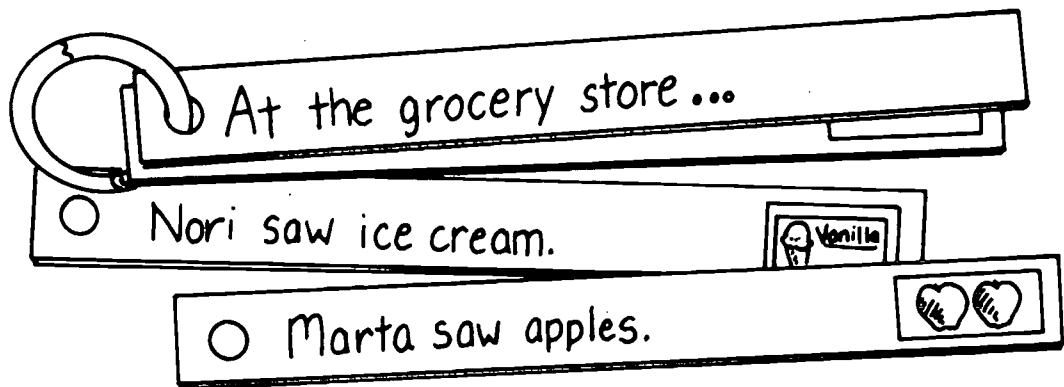 At the grocery store...
Nori saw ice cream.
Vanilla
Marta saw apples.